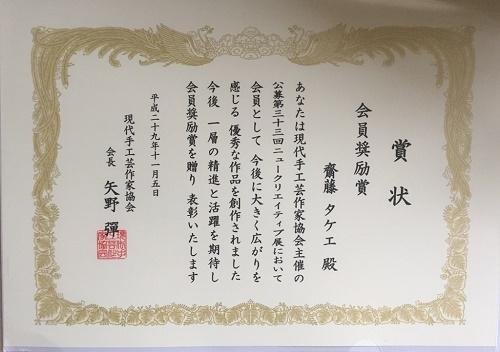 賞状
会員奨励賞
齋藤タケエ 殿
あなたは現代手工芸作家協会主催の
公募第三十三回ニュークリエイティブ展において
会員として 今後に大きく広がりを
感じる 優秀な作品を創作されました
今後 一層の精進と活躍を期待し
会員奨励賞を贈り 表彰いたします
平成二十九年十一月五日
現代手工芸作家協会
会長 矢野 彈